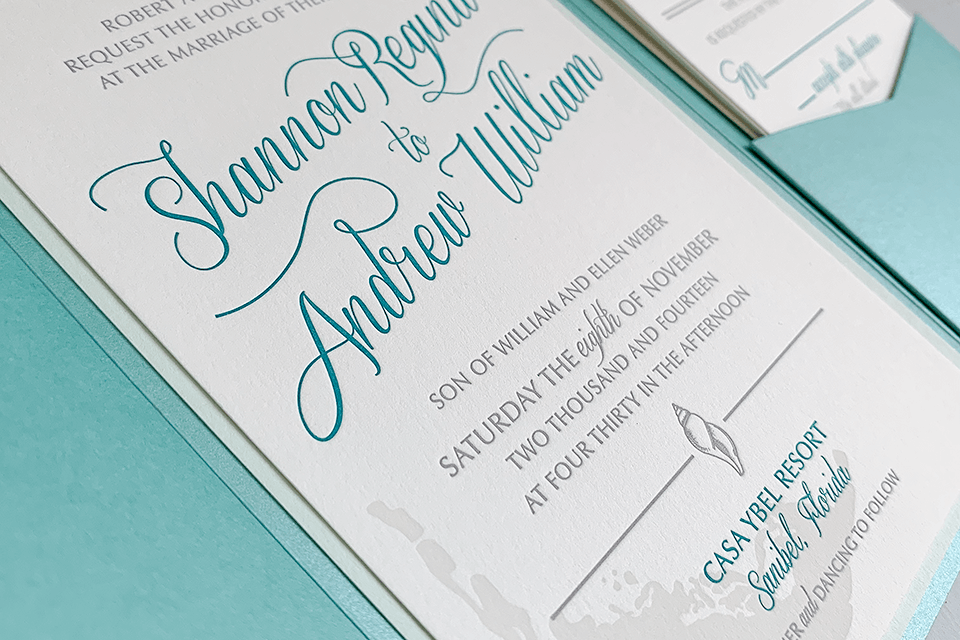 ROBERT
REQUEST THE HONOR
AT THE MARRIAGE OF THEIR
Shannon Regina
to
Andrew William
SON OF WILLIAM AND ELLEN WEBER
SATURDAY THE eighth OF NOVEMBER
TWO THOUSAND AND FOURTEEN
AT FOUR THIRTY IN THE AFTERNOON
CASA YBEL RESORT
Sanibel, Florida
and DANCING TO FOLLOW
IS REQUESTED
M